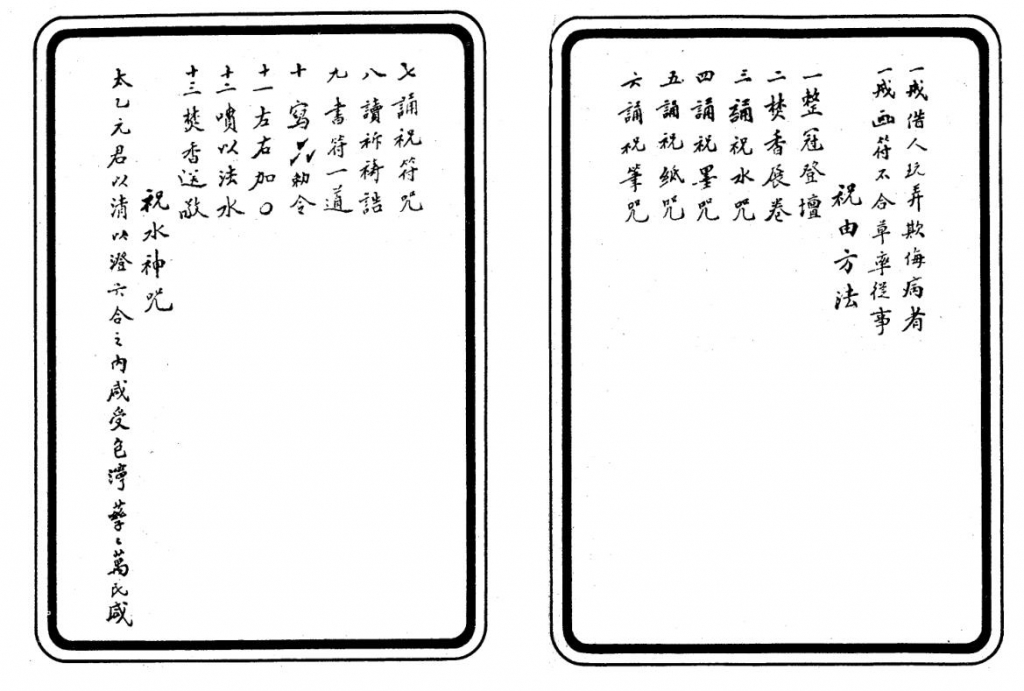 一戒借人玩弄欺侮病者
一戒画符不合草率從事
祝由方法
一整冠登壇
二焚香展卷
三誦祝水咒
四誦祝墨咒
五誦祝紙咒
六誦祝筆咒
七誦祝符咒
八讀祈禱誥
九書符一道
十寫勅令
十一左右加〇
十二噴以法水
十三焚香送敬
祝水神咒
太乙元君以清以澄六合之内咸受色濘萬民咸